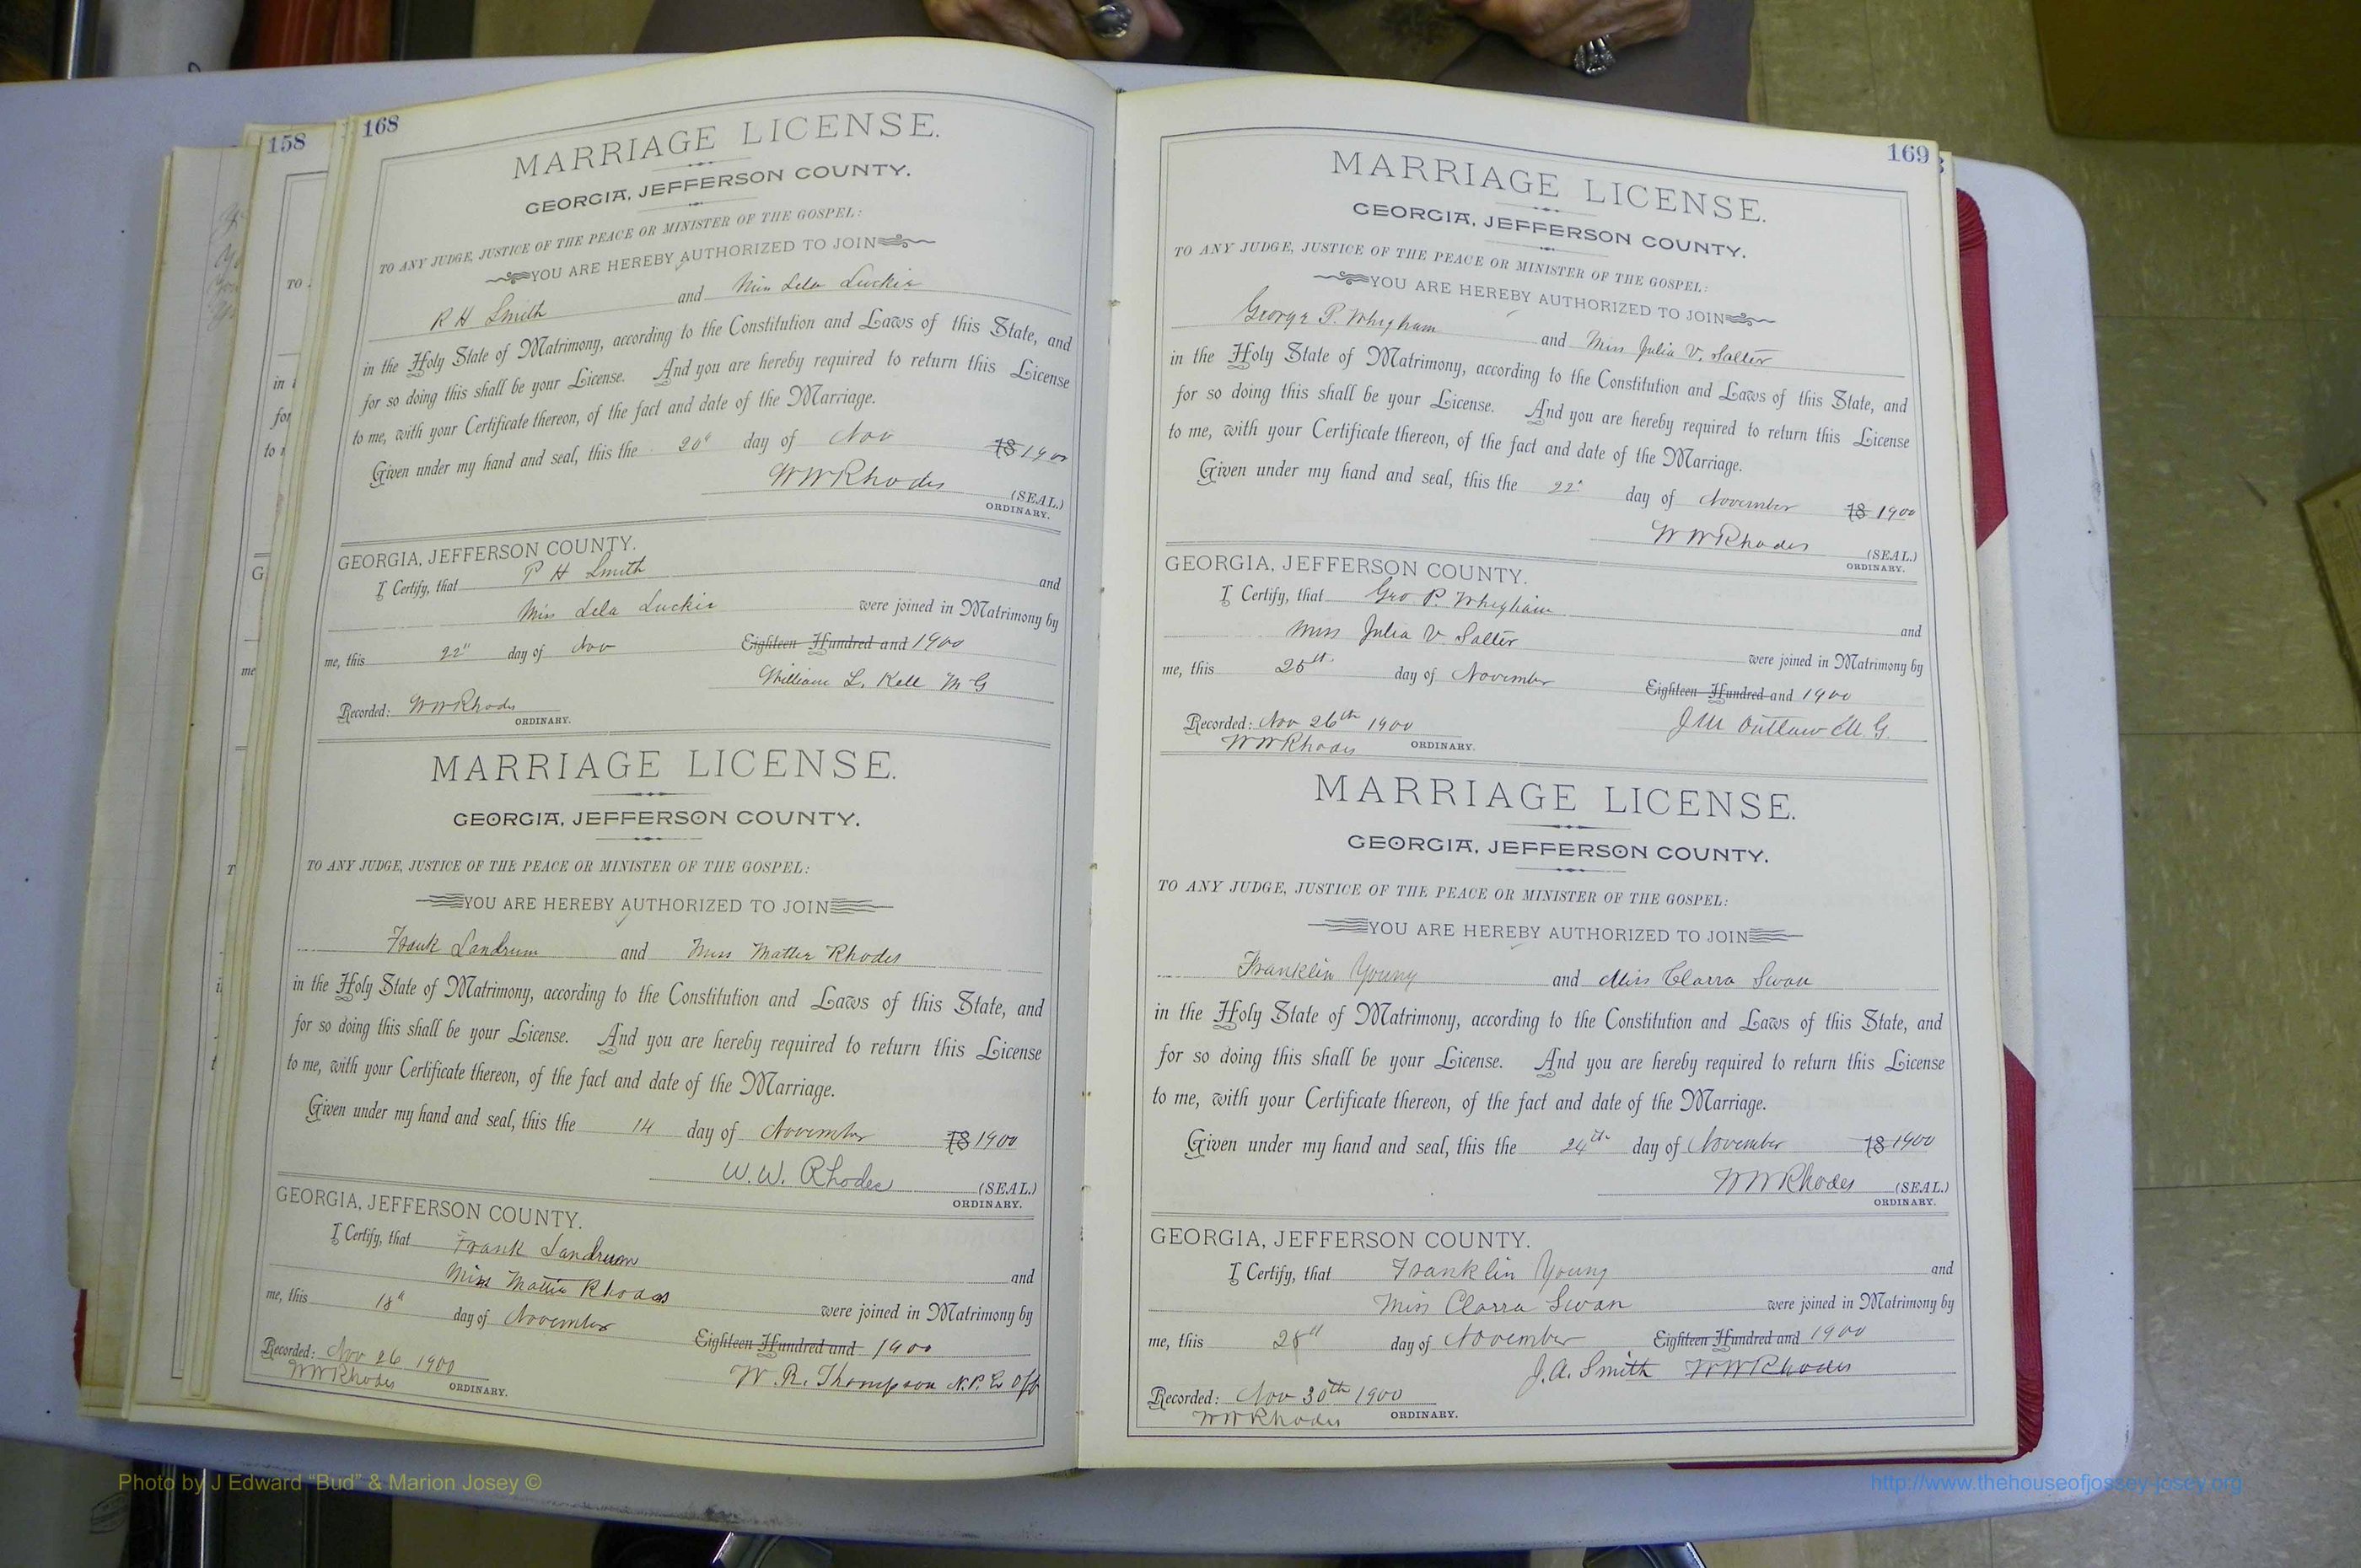 158
168
MARRIAGE LICENSE.
GEORGIA, JEFFERSON COUNTY.
TO ANY JUDGE, JUSTICE OF THE PEACE OR MINISTER OF THE GOSPEL:
YOU ARE HEREBY AUTHORIZED TO JOIN
R H Smith and Miss Lela Luckie
in the Holy State of Matrimony, according to the Constitution and Laws of this State, and
for so doing this shall be your License. And you are hereby required to return this License
to me, with your Certificate thereon, of the fact and date of the Marriage.
Given under my hand and seal, this the 20" day of Nov 18 1900
WW Rhodes (SEAL.)
ORDINARY.
GEORGIA, JEFFERSON COUNTY.
I Certify, that P H Smith and
Miss Lela Luckie were joined in Matrimony by
me, this 22" day of Nov Eighteen Hundred and 1900
William L. Kell M G
Recorded: WW Rhodes
ORDINARY.
MARRIAGE LICENSE.
GEORGIA, JEFFERSON COUNTY.
TO ANY JUDGE, JUSTICE OF THE PEACE OR MINISTER OF THE GOSPEL:
YOU ARE HEREBY AUTHORIZED TO JOIN
Frank Landrum and Miss Mattie Rhodes
in the Holy State of Matrimony, according to the Constitution and Laws of this State, and
for so doing this shall be your License. And you are hereby required to return this License
to me, with your Certificate thereon, of the fact and date of the Marriage.
Given under my hand and seal, this the 14 day of November 18 1900
W. W. Rhodes (SEAL.)
ORDINARY.
GEORGIA, JEFFERSON COUNTY.
I Certify, that Frank Landrum and
Miss Mattie Rhodes were joined in Matrimony by
me, this 18" day of November Eighteen Hundred and 1900
W. R. Thompson N.P.
Recorded: Nov 26 1900
WW Rhodes ORDINARY.
169
MARRIAGE LICENSE.
GEORGIA, JEFFERSON COUNTY.
TO ANY JUDGE, JUSTICE OF THE PEACE OR MINISTER OF THE GOSPEL:
YOU ARE HEREBY AUTHORIZED TO JOIN
George P. Whigham and Miss Julia V. Salter
in the Holy State of Matrimony, according to the Constitution and Laws of this State, and
for so doing this shall be your License. And you are hereby required to return this License
to me, with your Certificate thereon, of the fact and date of the Marriage.
Given under my hand and seal, this the 22" day of November 18 1900
WW Rhodes (SEAL.)
ORDINARY.
GEORGIA, JEFFERSON COUNTY.
I Certify, that Geo P. Whigham and
Miss Julia V Salter were joined in Matrimony by
me, this 25th day of November Eighteen Hundred and 1900
J M Outlaw M. G.
Recorded: Nov 26th 1900
WW Rhodes ORDINARY.
MARRIAGE LICENSE.
GEORGIA, JEFFERSON COUNTY.
TO ANY JUDGE, JUSTICE OF THE PEACE OR MINISTER OF THE GOSPEL:
YOU ARE HEREBY AUTHORIZED TO JOIN
Franklin Young and Miss Clarra Swan
in the Holy State of Matrimony, according to the Constitution and Laws of this State, and
for so doing this shall be your License. And you are hereby required to return this License
to me, with your Certificate thereon, of the fact and date of the Marriage.
Given under my hand and seal, this the 24th day of November 18 1900
WW Rhodes (SEAL.)
ORDINARY.
GEORGIA, JEFFERSON COUNTY.
I Certify, that Franklin Young and
Miss Clarra Swan were joined in Matrimony by
me, this 28" day of November Eighteen Hundred and 1900
J. A. Smith WW Rhodes
Recorded: Nov 30th 1900
WW Rhodes ORDINARY.
Photo by J Edward “Bud” & Marion Josey ©
http://www.thehouseofjossey-josey.org